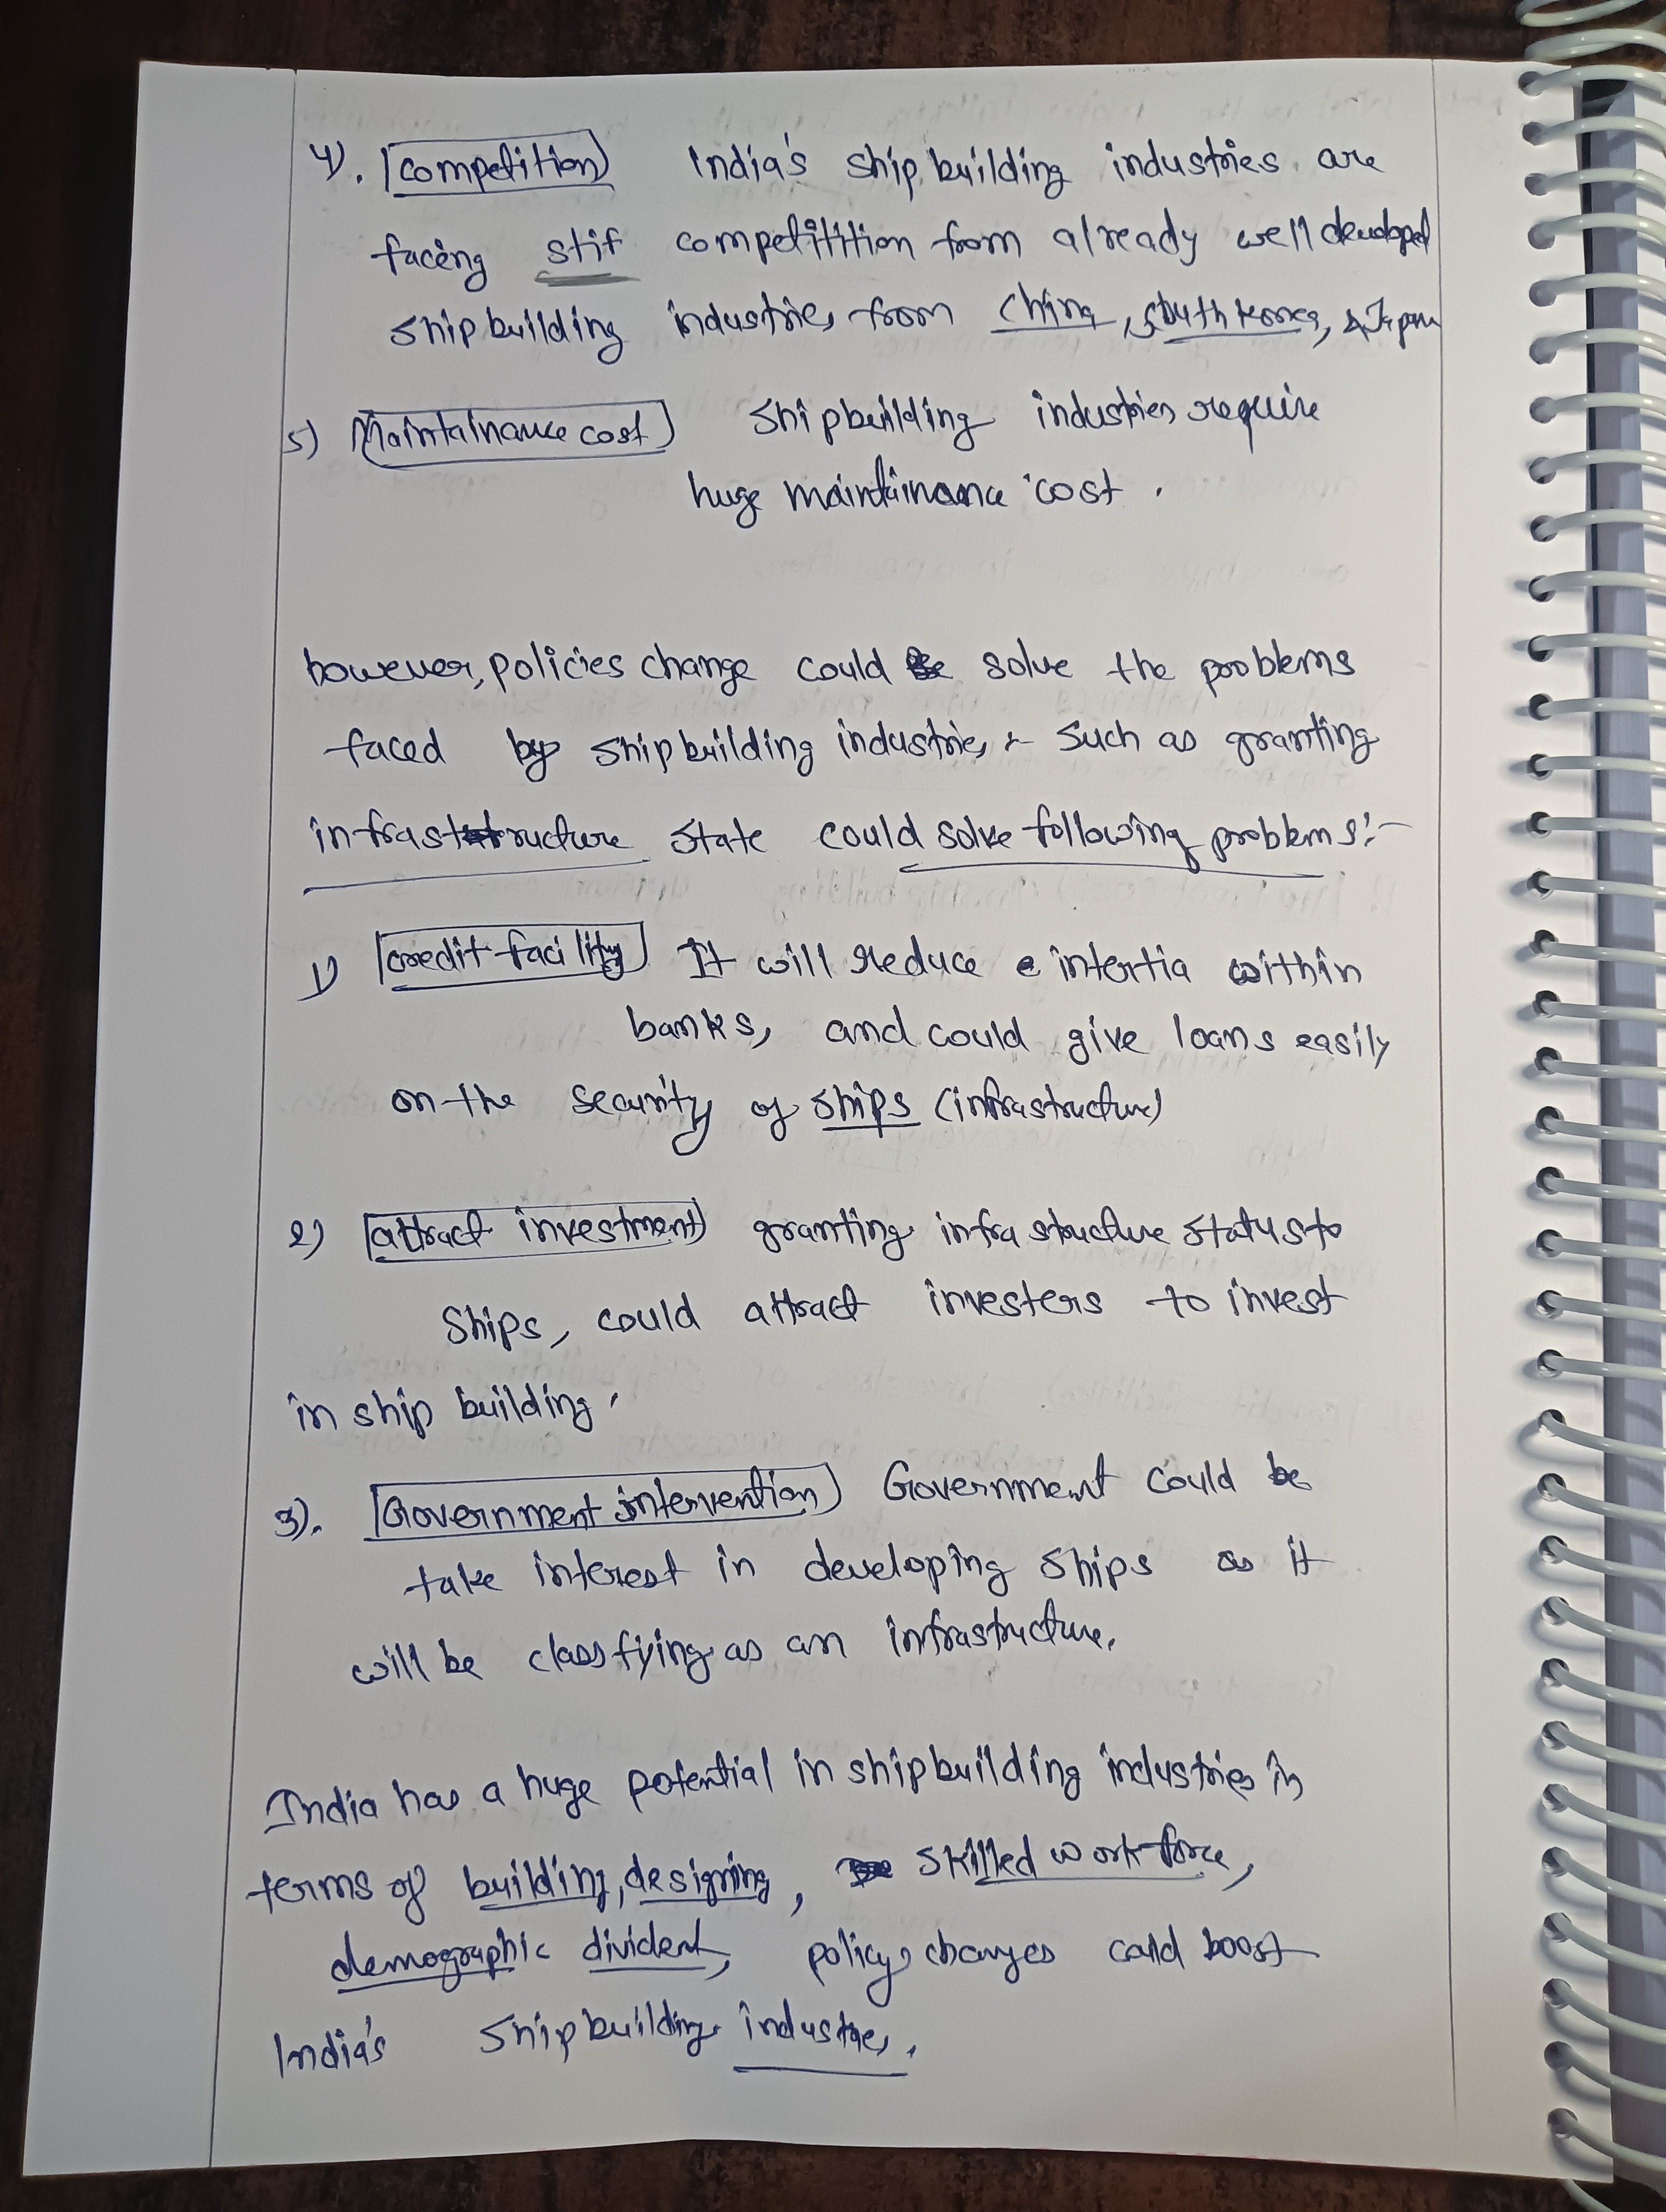 4). Competition India's ship building industries are
facing stif competitition from already well developed
ship building industries from China, South Korea, & Japan
5) Maintainance cost Shipbuilding industries require
huge maintainance cost.
however, policies change could solve the problems
faced by ship building industries :- Such as granting
infrastructure state could solve following problems:-
1) credit facility It will reduce intertia within
banks, and could give loans easily
on the security of ships (infrastructure)
2) attract investment granting infrastructure status to
Ships, could attract investers to invest
in ship building.
3). Government intervention Government could be
take interest in developing ships as it
will be classfying as an infrastructure.
India has a huge potential in shipbuilding industries in
terms of building, designing, skilled work force,
demographic divident, policy changes could boost
India's Shipbuilding industries.